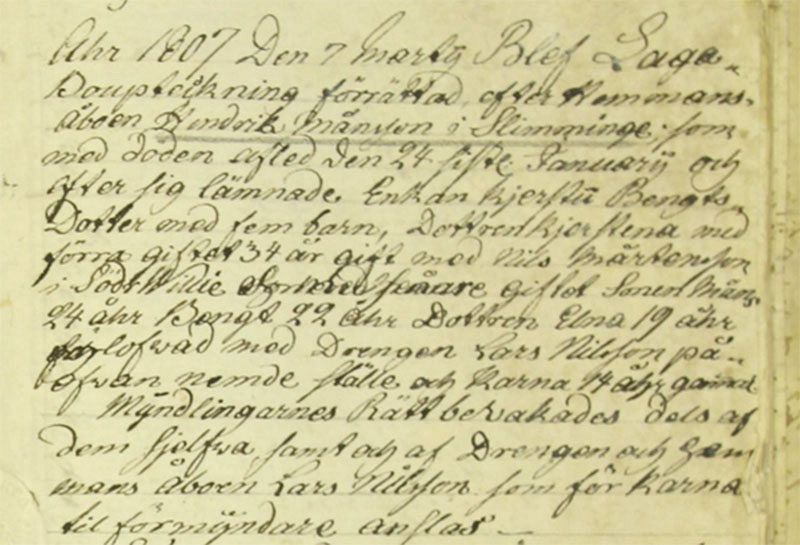 Åhr 1807 Den 7 Martij Blef Laga
Bouptekning förrättad efter Hemmans-
åboen Hindrik Månsson i Slimminge som
med döden afled den 24 siste Januarij och
efter sig lämnade Enkan Kjersti Bengts
Dotter med fem barn, Dottren Kjerstena med
förra giftet 34 år gift med Nils Mårtensson
i Södr Willie med senare giftet Sonen Måns
24 åhr Bengt 22 åhr Dottren Elna 19 åhr
förlofwad med Drengen Lars Nilsson på
ofwan nemde ställe och Karna 14 åhr gammal
Myndlingarnes Rätt bevakades dels af
dem sjelfwa samt och af Drengen och Hem
mans åboen Lars Nilsson som för Karna
til förmyndare anslas